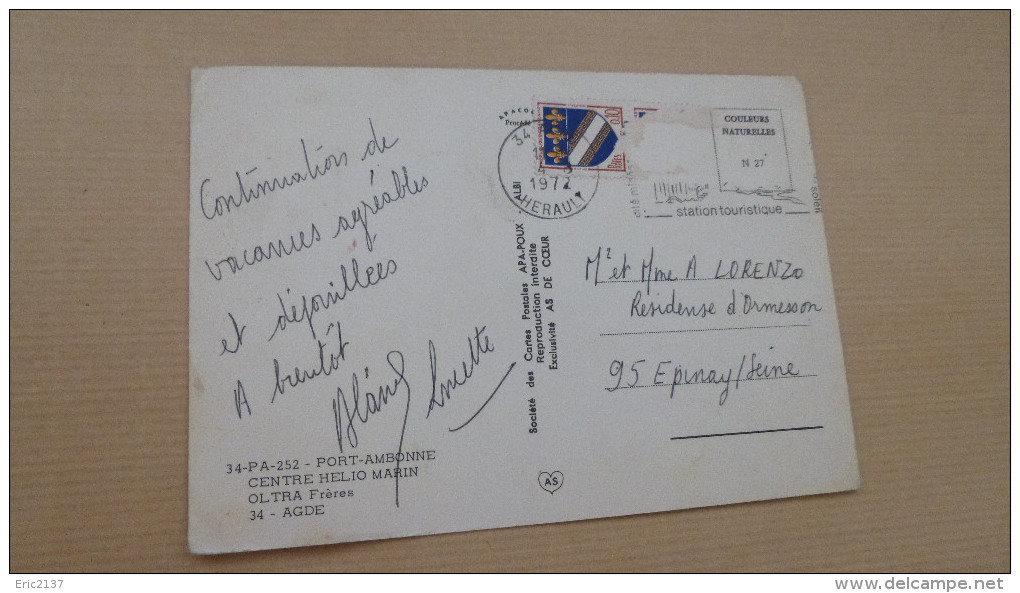 Continuation de
vacances agréables
et déjouillees
A bientôt
Lucette
34-PA-252 - PORT-AMBONNE
CENTRE HELIO MARIN
OLTRA Frères
34 - AGDE
Société des Cartes Postales APA-POUX - ALBI
Reproduction interdite
Exclusivité AS DE CŒUR
AS
0,10
34
1972
HERAULT
COULEURS
NATURELLES
N 27
station touristique
soleil
Mr et Mme A LORENZO
Residense d'Ormesson
95 Epinay/Seine
Eric2137
www.delcampe.net